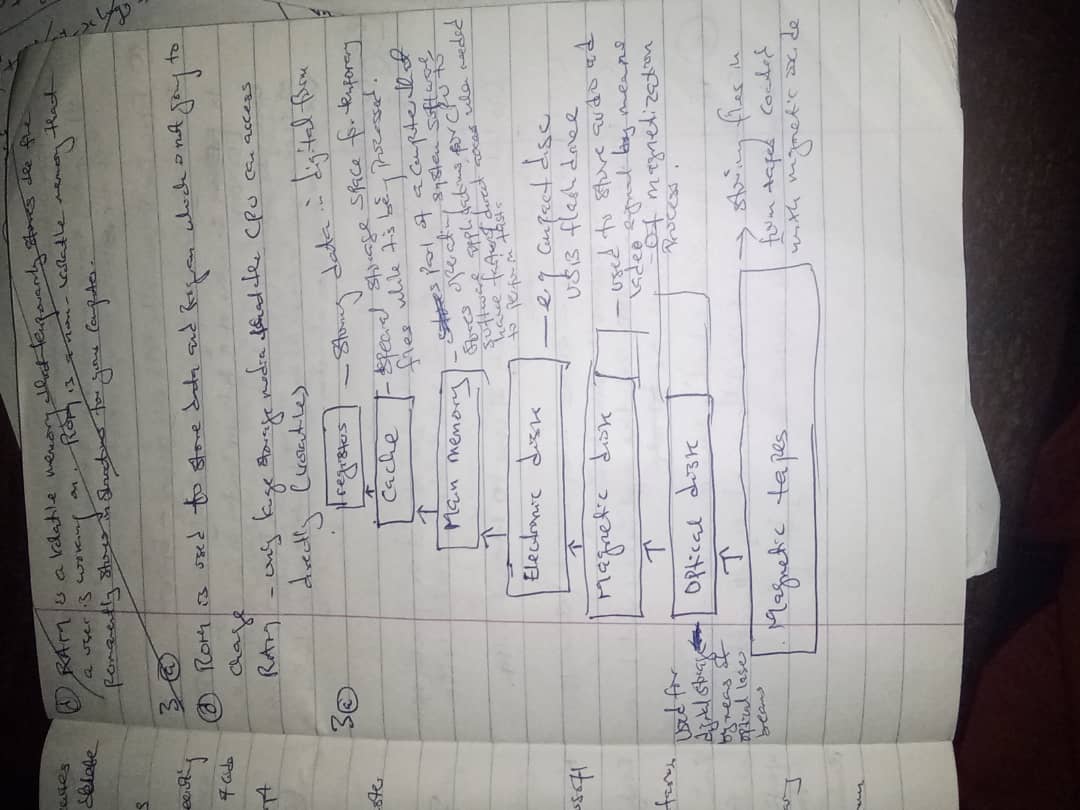 RAM is a volatile memory that temporarily stores the files
a user is working on. ROM is a non-volatile memory that
permanently stores instructions for your computer.
3 a
d ROM is used to store data and program which is not going to
change
RAM - only large storage media that the CPU can access
directly (volatile)
3a
registers - storing data in digital form
Cache - special storage space for temporary
files while it is be processed.
Main memory - part of a computer that
stores operating system software
software applications for CPU to
have fast direct access when needed
to perform tasks
Electronic disk - eg compact disc
USB flash drive
Magnetic disk - used to store audio and
video signal by means
of magnetization
Process.
Optical disk
Used for
digital storage
by means of
optical laser
beams
Magnetic tapes → storing files in
form taped coated
with magnetic oxide